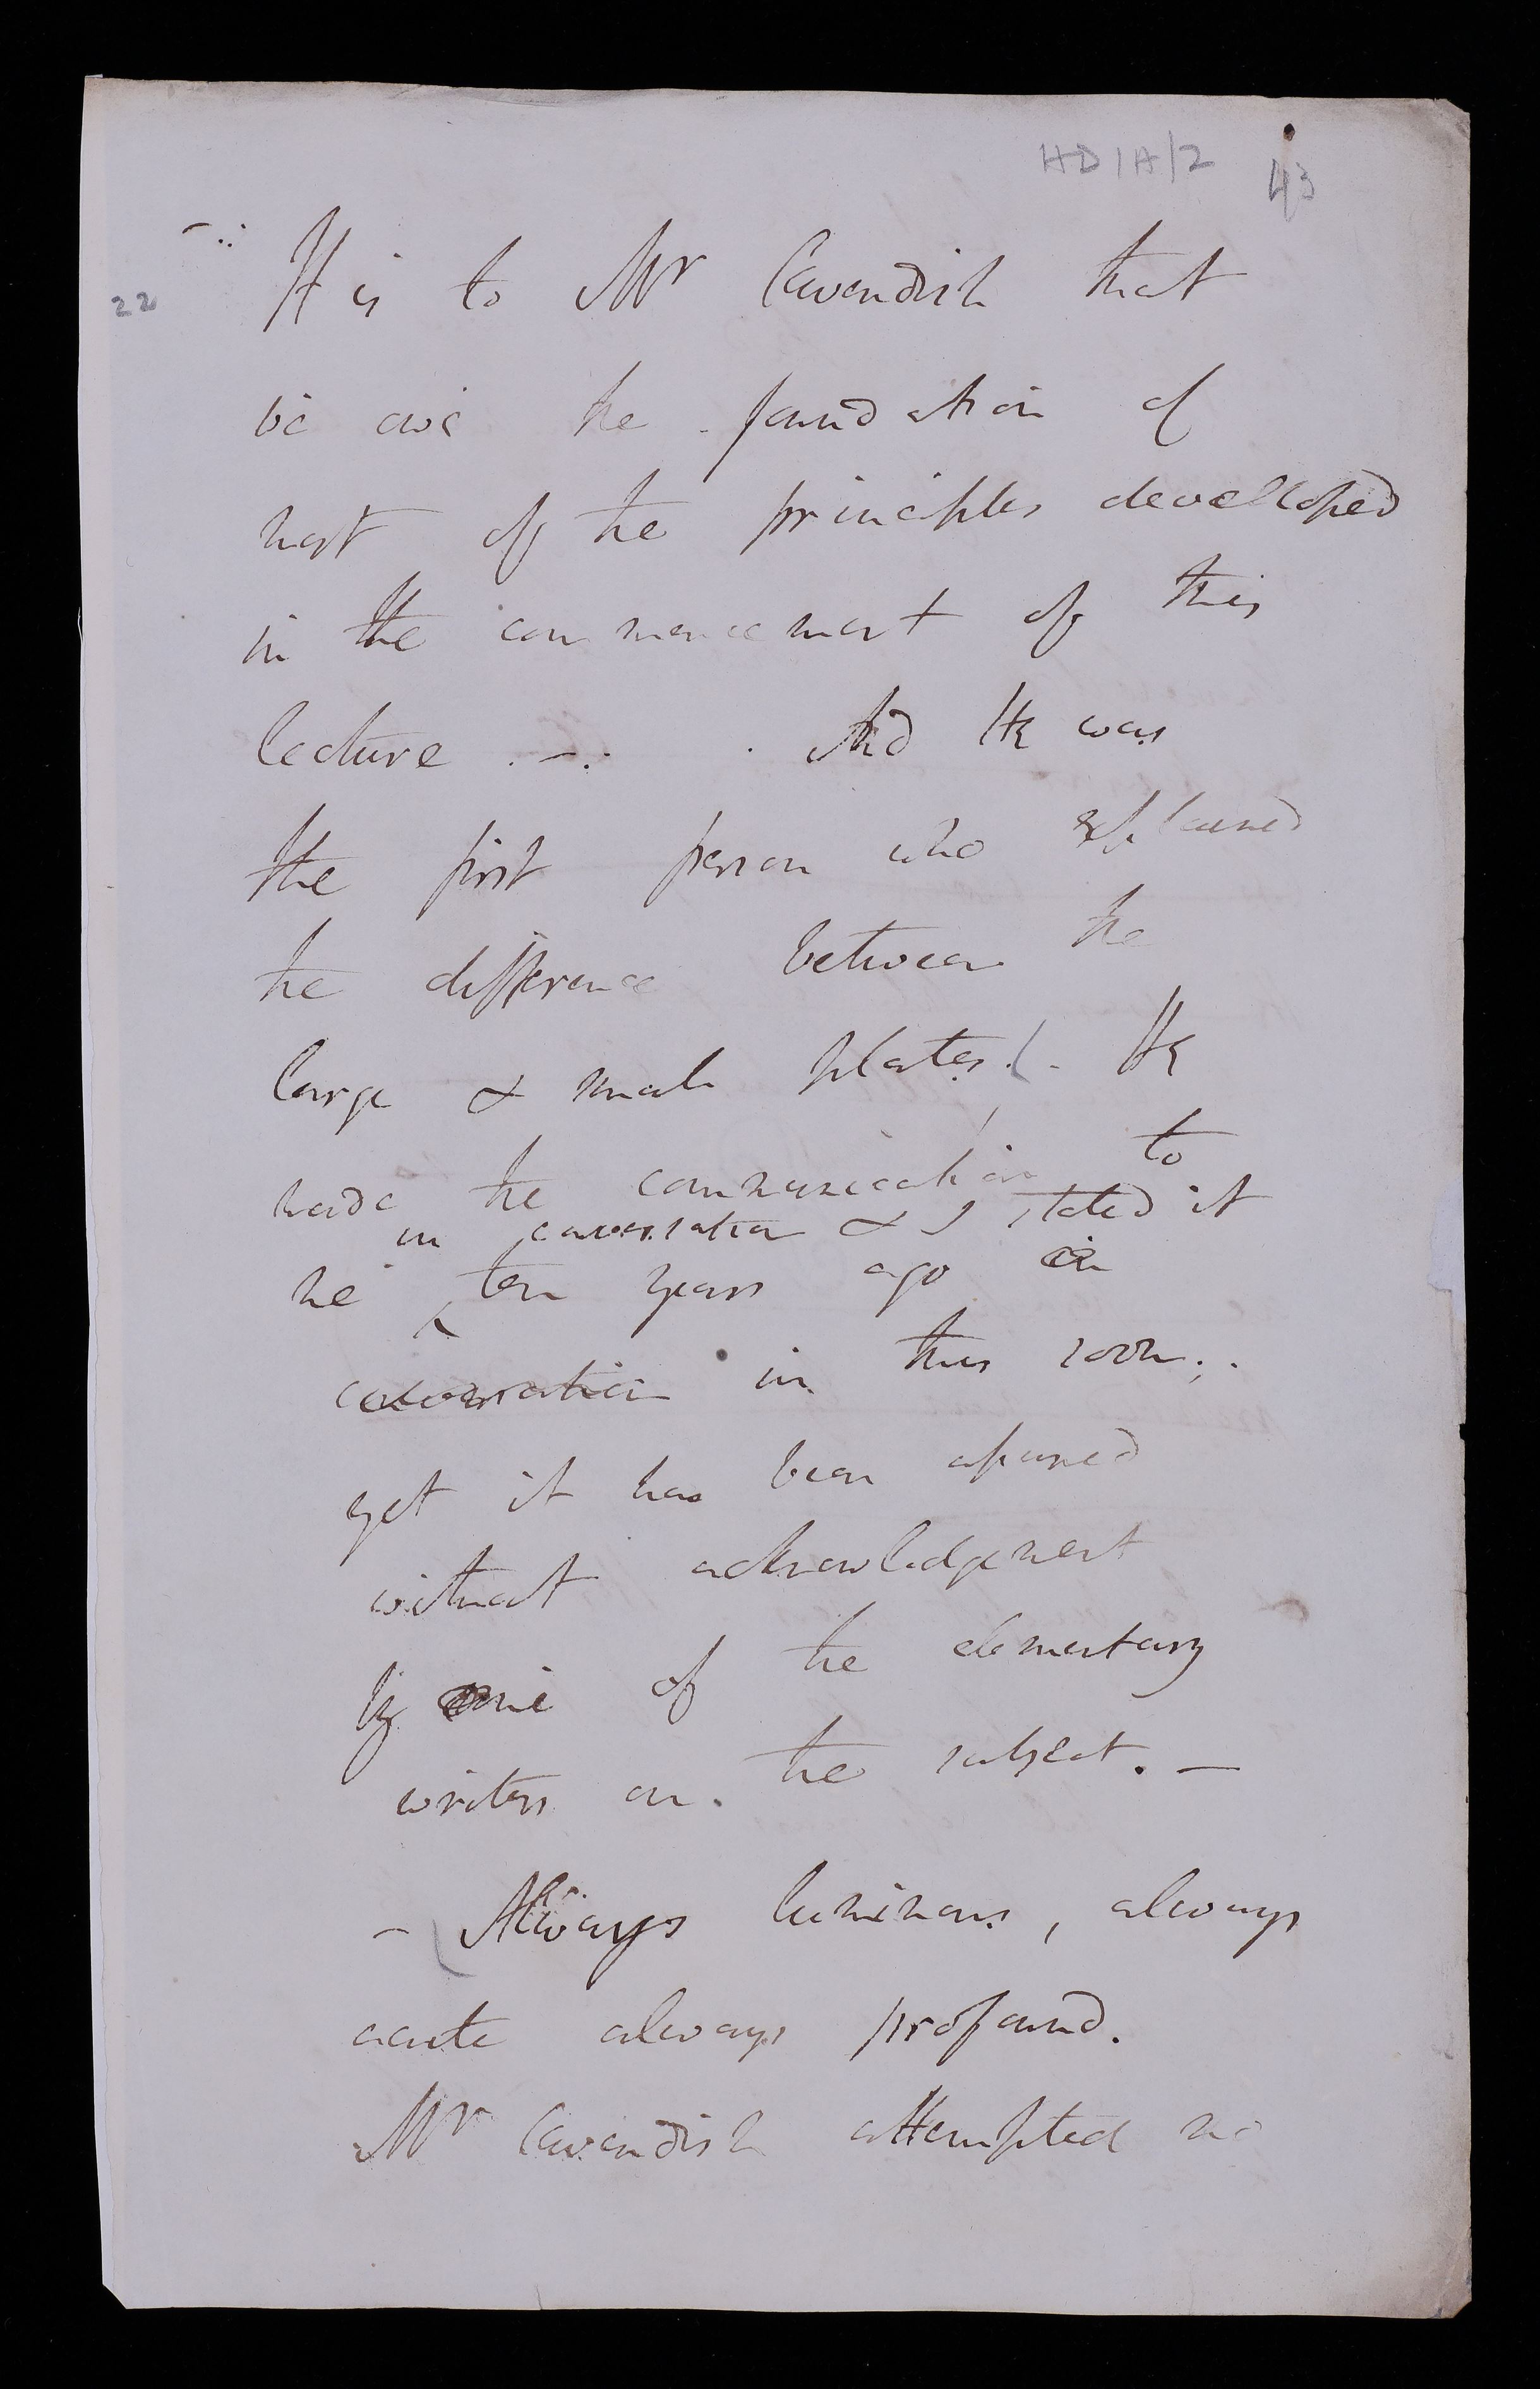 HD/A/2 43
22
It is to Mr Cavendish that
we owe the foundation of
most of the principles develloped
in the commencement of this
lecture. -. And He was
the first person who explained
the difference between the
large & small plates. (- He
made the communication to
in conversation & I stated it
me ten years ago in
conversation in this room;.
yet it has been assumed
without acknowledgement
by one of the elementary
writers on the subject. —
- Always luminous, always
acute always profound.
Mr Cavendish attempted no